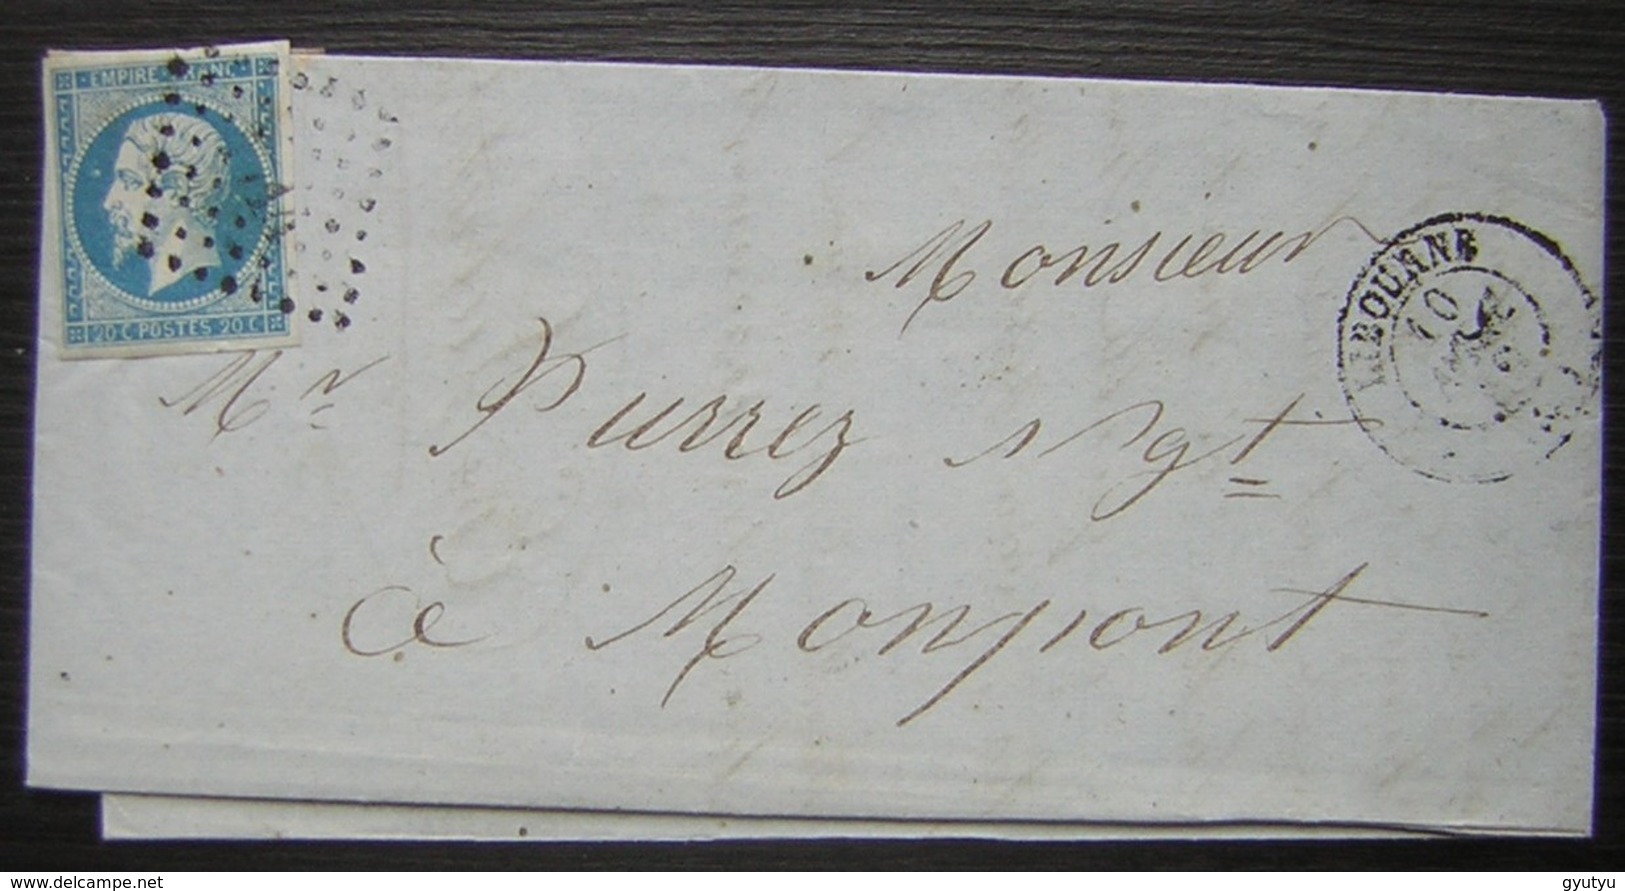 EMPIRE FRANC
20 C POSTES 20 C
Monsieur
LIBOURNE
10
Mr Purrez Ngt
à Monpont
delcampe.net
gyutyu